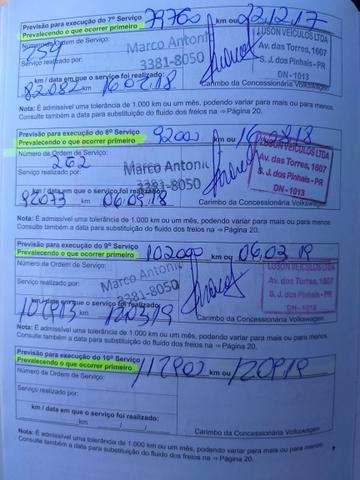 Previsão para execução do 7º Serviço 79760 km ou 22.12.17
Prevalecendo o que ocorrer primeiro
Número da Ordem de Serviço:
Marco Antonio
Serviço realizado por: 3381-8050
LUSON VEÍCULOS LTDA
Av. das Torres, 1607
S. J. dos Pinhais - PR
DN - 1013
km / data em que o serviço foi realizado:
82.082 km
Carimbo da Concessionária Volkswagen
Nota: É admissível uma tolerância de 1.000 km ou um mês, podendo variar para mais ou para menos.
Consulte também a data para substituição do fluido dos freios na ⇒ Página 20.
Previsão para execução do 8º Serviço 92000 km ou
Prevalecendo o que ocorrer primeiro
Número da Ordem de Serviço:
262
Marco Antonio
Serviço realizado por: 3381-8050
Av. das Torres, 1607
S. J. dos Pinhais - PR
DN - 1013
km / data em que o serviço foi realizado:
92073 km 06.09.18
Carimbo da Concessionária Volkswagen
Nota: É admissível uma tolerância de 1.000 km ou um mês, podendo variar para mais ou para menos.
Consulte também a data para substituição do fluido dos freios na ⇒ Página 20.
Previsão para execução do 9º Serviço 102000 km ou 06.03.19
Prevalecendo o que ocorrer primeiro
Número da Ordem de Serviço:
Marco Antonio
Serviço realizado por: 3381-8050
LUSON VEÍCULOS LTDA
Av. das Torres, 1607
S. J. dos Pinhais - PR
DN - 1013
km / data em que o serviço foi realizado:
km
Carimbo da Concessionária Volkswagen
Nota: É admissível uma tolerância de 1.000 km ou um mês, podendo variar para mais ou para menos.
Consulte também a data para substituição do fluido dos freios na ⇒ Página 20.
Previsão para execução do 10º Serviço 112900 km ou 120919
Prevalecendo o que ocorrer primeiro
Número da Ordem de Serviço:
Serviço realizado por:
km / data em que o serviço foi realizado:
km / /
Carimbo da Concessionária Volkswagen
Nota: É admissível uma tolerância de 1.000 km ou um mês, podendo variar para mais ou para menos.
Consulte também a data para substituição do fluido dos freios na ⇒ Página 20.